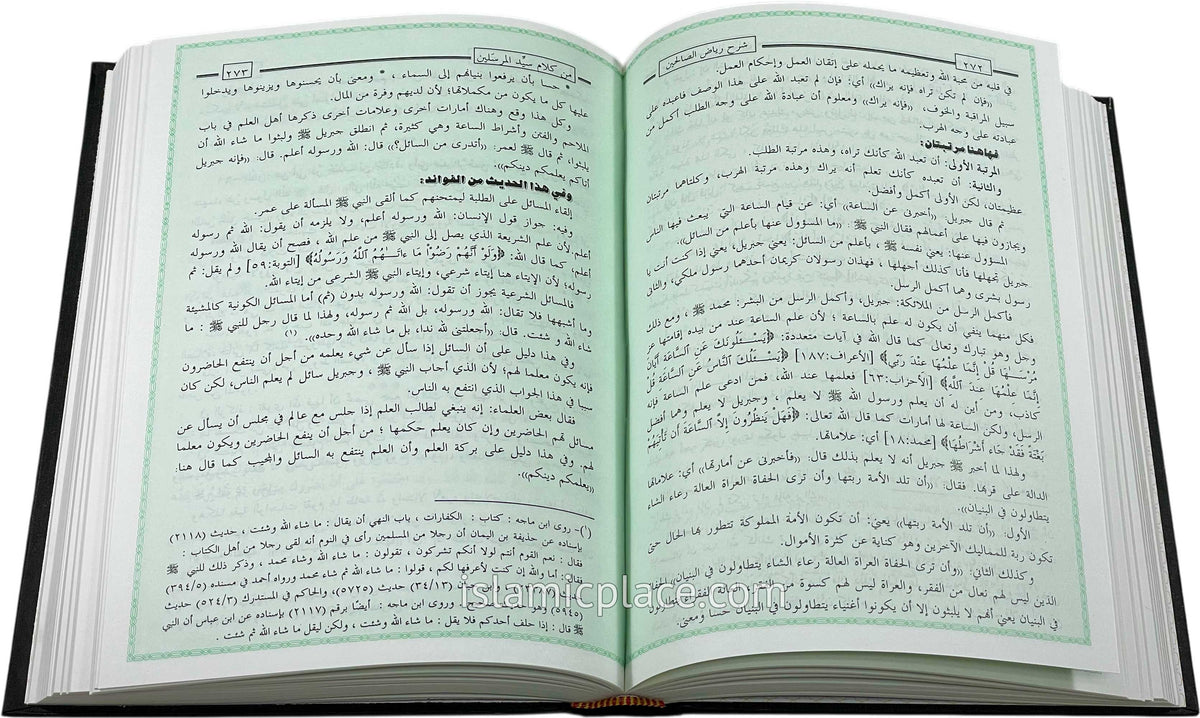 ٢٧٢
شرح رياض الصالحين
في قلبه من محبة الله وتعظيمه ما يحمله على إتقان العمل وإحكام العمل.
«فإن لم تكن تراه فإنه يراك» أي: فإن لم تعبد الله على هذا الوصف فاعبده على
سبيل المراقبة والخوف، «فإنه يراك» ومعلوم أن عبادة الله على وجه الطلب أكمل من
عبادته على وجه الهرب.
فهاهنا مرتبتان:
المرتبة الأولى: أن تعبد الله كأنك تراه، وهذه مرتبة الطلب.
والثانية: أن تعبده كأنك تعلم أنه يراك وهذه مرتبة الهرب، وكلتاهما مرتبتان
عظيمتان، لكن الأولى أكمل وأفضل.
ثم قال جبريل: «أخبرني عن الساعة» أي: عن قيام الساعة التي يبعث فيها الناس
ويجازون فيها على أعمالهم فقال النبي ﷺ: «ما المسؤول عنها بأعلم من السائل».
المسؤول عنها: يعني نفسه ﷺ، بأعلم من السائل: يعني جبريل، يعني إذا كنت أنت يا
جبريل تجهلها فأنا كذلك أجهلها، فهذان رسولان كريمان أحدهما رسول ملكي، والثاني
رسول بشري وهما أكمل الرسل.
فأكمل الرسل من الملائكة: جبريل، وأكمل الرسل من البشر: محمد ﷺ، ومع ذلك
فكل منهما ينفي أن يكون له علم بالساعة؛ لأن علم الساعة عند من بيده إقامتها عز
وجل وهو تبارك وتعالى كما قال الله في آيات متعددة: ﴿يَسْـَٔلُونَكَ عَنِ ٱلسَّاعَةِ أَيَّانَ
مُرْسَىٰهَا قُلْ إِنَّمَا عِلْمُهَا عِندَ رَبِّي﴾ [الأعراف:١٨٧] ﴿يَسْـَٔلُكَ ٱلنَّاسُ عَنِ ٱلسَّاعَةِ قُلْ
إِنَّمَا عِلْمُهَا عِندَ ٱللَّهِ﴾ [الأحزاب:٦٣] فعلمها عند الله، فمن ادعى علم الساعة فإنه
كاذب، ومن أين له أن يعلم ورسول الله ﷺ لا يعلم، وجبريل لا يعلم وهما أفضل
الرسل، ولكن الساعة لها أمارات كما قال الله تعالى: ﴿فَهَلْ يَنظُرُونَ إِلَّا ٱلسَّاعَةَ أَن تَأْتِيَهُم
بَغْتَةً فَقَدْ جَاءَ أَشْرَاطُهَا﴾ [محمد:١٨] أي: علاماتها.
ولهذا لما أخبر ﷺ جبريل أنه لا يعلم بذلك قال: «فأخبرني عن أماراتها» أي: علاماتها
الدالة على قربها. فقال: «أن تلد الأمة ربتها وأن ترى الحفاة العراة العالة رعاء الشاء
يتطاولون في البنيان».
الأول: «أن تلد الأمة ربتها» يعني: أن تكون الأمة المملوكة تتطور بها الحال حتى
تكون ربة للمماليك الآخرين وهو كناية عن كثرة الأموال.
وكذلك الثاني: «وأن ترى الحفاة العراة العالة رعاء الشاء يتطاولون في البنيان»
الذين ليس لهم نعال من الفقر، والعراة ليس لهم كسوة من الفقر،
في البنيان يعني أنهم لا يلبثون إلا أن يكونوا أغنياء يتطاولون في البنيان حسا ومعنى.
من كلام سيِّد المرسلين
٢٧٣
• حسا بأن يرفعوا بنيانهم إلى السماء، • ومعنى بأن يحسنوها ويزينوها ويدخلوا
عليها كل ما يكون من مكملاتها؛ لأن لديهم وفرة من المال.
وكل هذا وقع وهناك أمارات أخرى وعلامات أخرى ذكرها أهل العلم في باب
الملاحم والفتن وأشراط الساعة وهي كثيرة، ثم انطلق جبريل ﷺ ولبثوا ما شاء الله أن
يلبثوا، ثم قال ﷺ لعمر: «أتدري من السائل؟» قال: الله ورسوله أعلم. قال: «فإنه جبريل
أتاكم يعلمكم دينكم».
وفي هذا الحديث من الفوائد:
إلقاء المسائل على الطلبة ليمتحنهم كما ألقى النبي ﷺ المسألة على عمر.
وفيه: جواز قول الإنسان: الله ورسوله أعلم، ولا يلزمه أن يقول: الله ثم رسوله
أعلم لأن علم الشريعة الذي يصل إلى النبي ﷺ من علم الله، فصح أن يقال الله ورسوله
أعلم، كما قال الله: ﴿وَلَوْ أَنَّهُمْ رَضُوا۟ مَا ءَاتَىٰهُمُ ٱللَّهُ وَرَسُولُهُ﴾ [التوبة:٥٩] و لم يقل: ثم
رسوله؛ لأن الإيتاء هنا إيتاء شرعي، وإيتاء النبي ﷺ الشرعي من إيتاء الله.
فالمسائل الشرعية يجوز أن تقول: الله ورسوله بدون (ثم) أما المسائل الكونية كالمشيئة
وما أشبهها فلا تقال: الله ورسوله، بل الله ثم رسوله، ولهذا لما قال رجل للنبي ﷺ: ما
شاء الله و شئت. قال: «أجعلتني لله ندا، بل ما شاء الله وحده». (١)
وفي هذا دليل على أن السائل إذا سأل عن شيء يعلمه من أجل أن ينتفع الحاضرون
فإنه يكون معلما لهم؛ لأن الذي أجاب النبي ﷺ، وجبريل سائل لم يعلم الناس، لكن كان
سببا في هذا الجواب الذي انتفع به الناس.
فقال بعض العلماء: إنه ينبغي لطالب العلم إذا جلس مع عالم في مجلس أن يسأل عن
مسائل تهم الحاضرين وإن كان يعلم حكمها؛ من أجل أن ينفع الحاضرين ويكون معلما
لهم. وفي هذا دليل على بركة العلم وأن العلم ينتفع به السائل والمجيب كما قال هنا:
«يعلمكم دينكم».
(١)– روى ابن ماجه : كتاب : الكفارات ، باب النهي أن يقال : ما شاء الله وشئت ، حديث (٢١١٨)
بإسناده عن حذيفة بن اليمان أن رجلا من المسلمين رأى في النوم أنه لقى رجلا من أهل الكتاب :
فقال : نعم القوم أنتم لولا أنكم تشركون ، تقولون : ما شاء الله وشاء محمد ، وذكر ذلك للنبي ﷺ
فقال : أما والله إن كنت لأعرفها لكم ، قولوا : ما شاء الله ثم شاء محمد ورواه أحمد في مسنده (٣٩٤/٥)
(٣٤/١٣) حديث (٥٧٢٥)، والحاكم في المستدرك (٥٢٤/٣) حديث
(٥٩٤٥) وروى ابن ماجه : أيضًا برقم (٢١١٧) بإسناده عن ابن عباس أن النبي
ﷺ قال : إذا حلف أحدكم فلا يقل : ما شاء الله وشئت ، ولكن ليقل ما شاء الله ثم شئت .
islamicplace.com